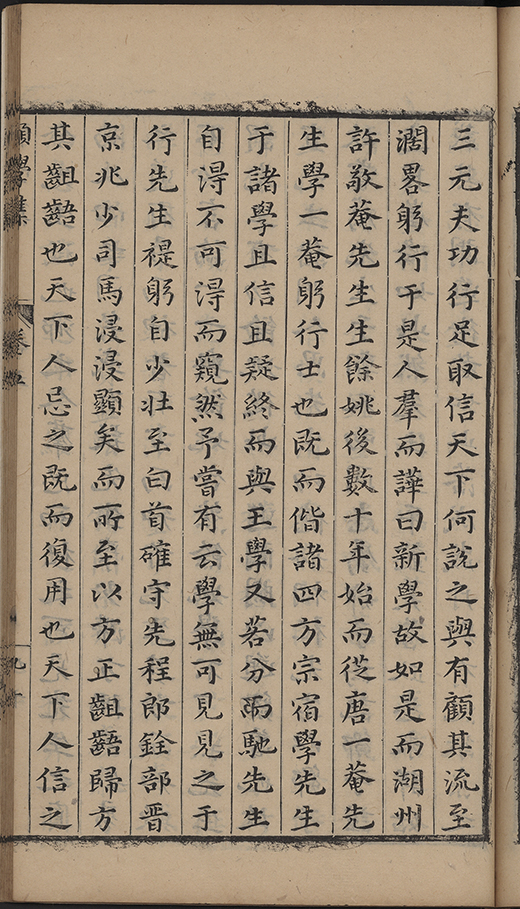 三元夫功行足取信天下何說之與有顧其流至
濶畧躬行于是人羣而譁曰新學故如是而湖州
許敬菴先生生餘姚後數十年始而從唐一菴先
生學一菴躬行士也既而偕諸四方宗宿學先生
于諸學且信且疑終而與王學又若分而馳先生
自淂不可淂而窺然予嘗有云學無可見見之于
行先生禔躬自少壮至白首確守先程郎銓部晋
京兆少司馬浸浸顯矣而所至以方正齟齬歸方
其齟齬也天下人忌之既而復用也天下人信之
學集
卷五